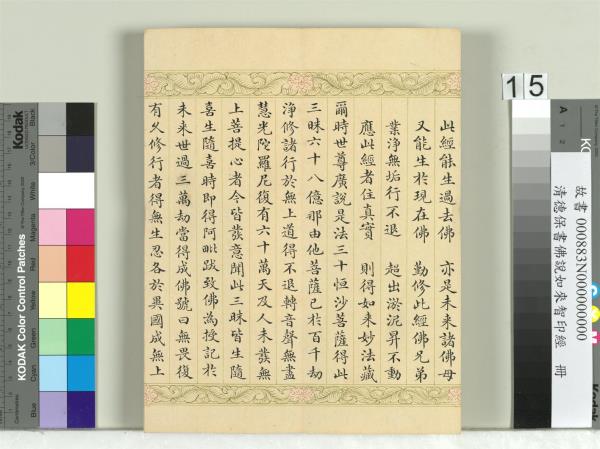 此經能生過去佛 亦是未來諸佛母
又能生於現在佛 勤修此經佛兄弟
業淨無垢行不退 超出淤泥昇不動
應此經者住真實 則得如来妙法藏
爾時世尊廣說是法三十恒沙菩薩得此
三昧六十八億那由他菩薩已於百千劫
淨修諸行於無上道得不退轉音聲無盡
慧光陀羅尼復有六十萬天及人未發無
上菩提心者今皆發意聞此三昧皆生隨
喜生隨喜時即得阿毗跋致佛為授記於
未来世過三萬劫當得成佛號曰無畏復
有久修行者得無生忍各於異國成無上
15
故書 000883N000000000
清德保書佛說如來智印經 冊
Kodak
KODAK Color Control Patches
Black
3/Color
White
Magenta
Red
Yellow
Green
Cyan
Blue
A 1 2